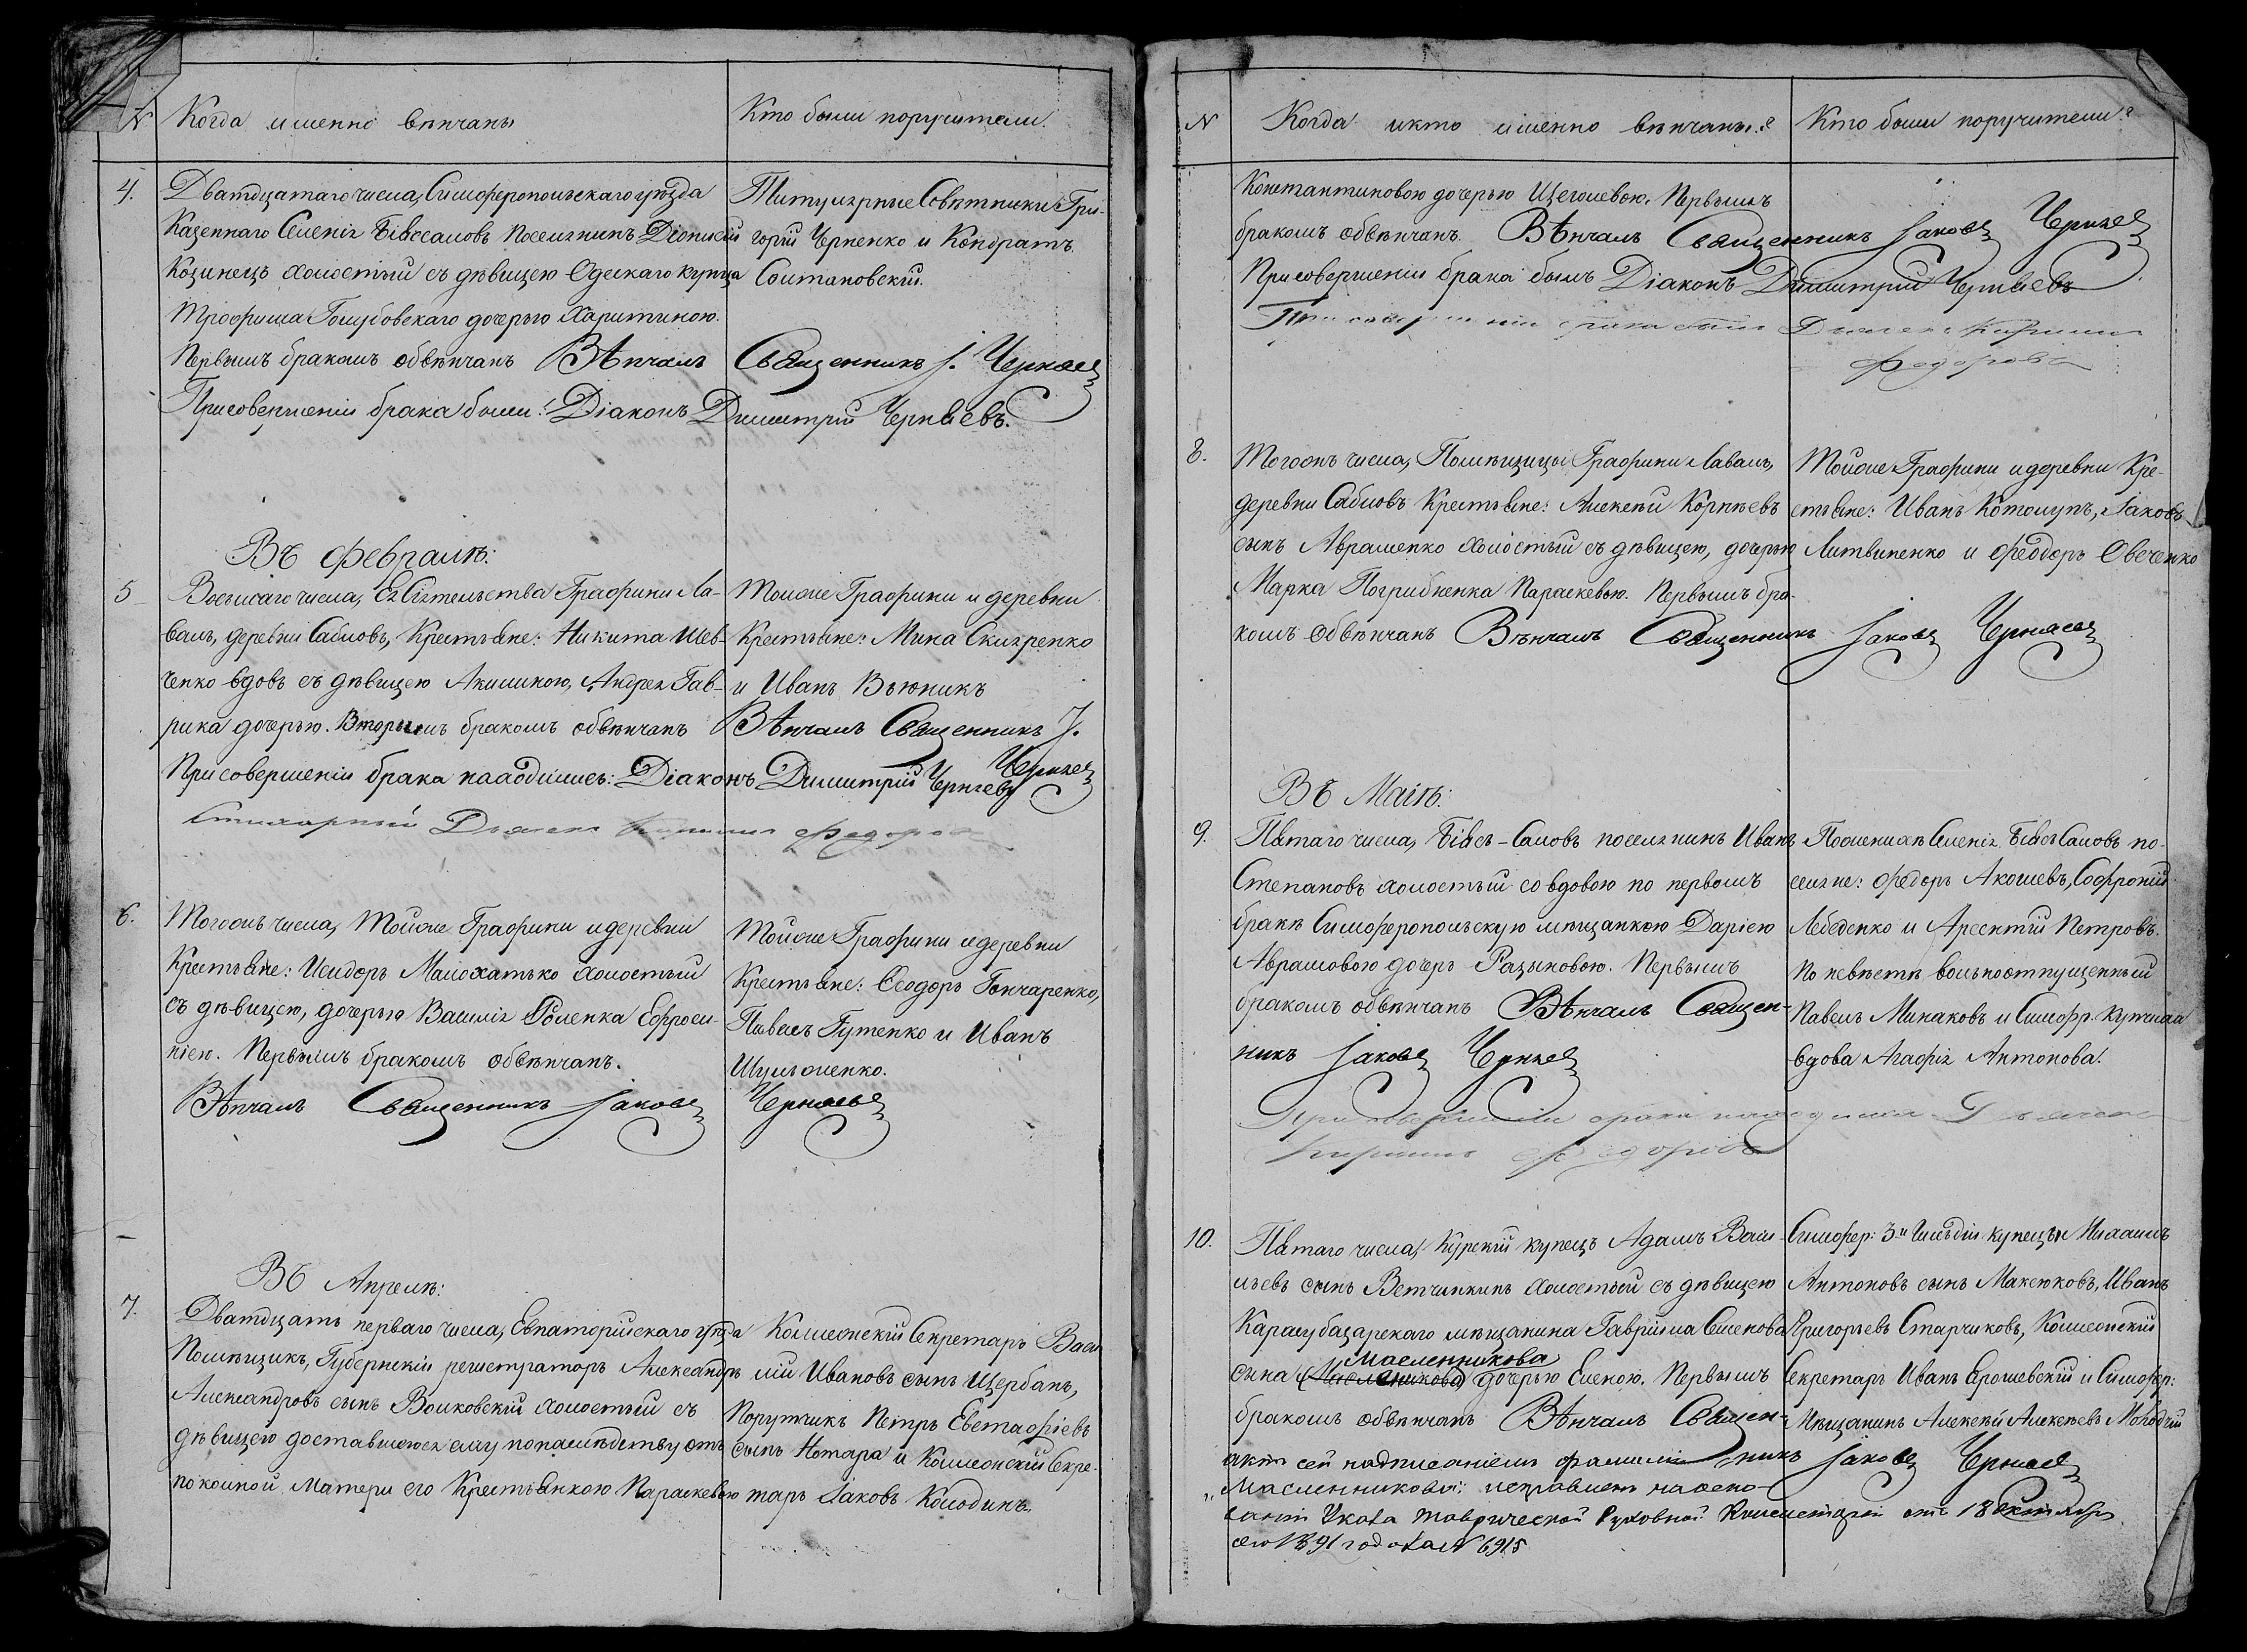 N Когда именно вѣнчаны
Кто были поручители.
4. Дватцатаго числа, Симферопольскаго уѣзда
Казеннаго Селенія Біясаловъ поселянинъ Діонисій
Козинецъ холостый съ дѣвицею Одескаго купца
Трофима Голубовскаго дочерью Харитиною.
Первымъ бракомъ обвѣнчанъ Вѣнчалъ Священникъ І. Черняев
При совершеніи брака были: Діаконъ Димитрій Черняевъ.
Титулярные Совѣтники: Гри-
горій Черненко и Кондратъ
Солтановскій.
Въ февралѣ:
5 Восьмаго числа, Ея Сіятельства Графини Ла-
валь, деревни Сабловъ, Крестьяне: Никита Шев-
ченко вдовъ съ дѣвицею Акилиною, Андрея Гав-
рика дочерью. Вторымъ бракомъ обвѣнчанъ Вѣнчалъ Священникъ І.
Черняев
При совершеніи брака находились: Діаконъ Димитрій Черняевъ
Стихарный Дьячекъ Кирилъ Федоровъ
Тойже Графини и деревни
Крестьяне: Мина Скляренко
и Иванъ Вьюникъ
6. Тогожъ числа, Тойже Графини и деревни
Крестьяне: Исидоръ Малохатько холостый
съ дѣвицею, дочерью Василія Роленка Ефроси-
ніею. Первымъ бракомъ обвѣнчанъ.
Вѣнчалъ Священникъ Іаковъ Черняевъ
Тойже Графини и деревни
Крестьяне: Ѳеодоръ Гончаренко,
Павелъ Гутенко и Иванъ
Шульженко.
Въ Апрелѣ:
7. Дватцать перваго числа, Евпаторійскаго уѣзда
Помѣщикъ, Губернскій регистраторъ Александръ
Александровъ сынъ Волковскій холостый съ
дѣвицею доставшеюся ему по наслѣдству отъ
покойной Матери его Крестьянкою Параскевою
Коллежскій Секретарь Васи
лій Ивановъ сынъ Щербань,
Порутчикъ Петръ Евстафіевъ
сынъ Нотара и Коллежскій Секре-
тарь Іаковъ Колодинъ.
N Когда и кто именно вѣнчаны?
Кто были поручители?
Константиновою дочерью Щеголевою. Первымъ
бракомъ обвѣнчанъ. Вѣнчалъ Священникъ Іаковъ Черняев
При совершеніи брака былъ Діаконъ Димитрій Черняевъ
При совершеніи брака былъ Дьячекъ Кирилъ
Федоровъ
8. Тогожъ числа, Помѣщицы Графини Лаваль,
деревни Сабловъ Крестьяне: Алексѣй Корнѣевъ
сынъ Авраменко холостый съ дѣвицею, дочерью
Марка Погрибненка Параскевою. Первымъ бра-
комъ обвѣнчанъ Вѣнчалъ Священникъ Іаковъ Черняевъ
Тойже Графини и деревни Кре-
стьяне: Иванъ Котолупъ, Іаковъ
Литвиненко и Феодоръ Овеченко
Въ Маіѣ:
9. Пятаго числа, Біясъ-Саловъ поселянинъ Иванъ
Степановъ холостый со вдовою по первомъ
бракѣ Симферопольскую мѣщанкою Даріею
Аврамовою дочерь Разыновою. Первымъ
бракомъ обвѣнчанъ Вѣнчалъ Священ-
никъ Іаковъ Черняев
По женихѣ Селенія Біясъ Саловъ по-
селяне: Федоръ Акошевъ, Софроній
Лебеденко и Арсентій Петровъ.
По невѣстѣ вольноотпущенный
Павелъ Минаковъ и Симфр. купчиха
вдова Агафія Антонова.
При совершеніи брака находился Дьячекъ
Кирилъ Федоровъ
10. Пятаго числа, Курскій купецъ Адамъ Васи-
льевъ сынъ Ветчинкинъ холостый съ дѣвицею
Карасубазарскаго мѣщанина Гавріила Семенова
Масленникова
сына (Масленикова) дочерью Еленою. Первымъ
бракомъ обвѣнчанъ Вѣнчалъ Священ-
никъ Іаковъ Черняев
Симфер: 3й Гильдіи купецъ Михаилъ
Антоновъ сынъ Максюковъ, Иванъ
Григорьевъ Старчиковъ, Коллежскій
Секретарь Иванъ Ерошевскій и Симфер:
Мѣщанинъ Алексѣй Алексѣевъ Молодый
актъ сей надписаніемъ фамиліи
„Масленникова" исправленъ на осно-
ваніи Указа Таврической Духовной Консисторіи отъ 18 октября
сего 1891 года за N 6915